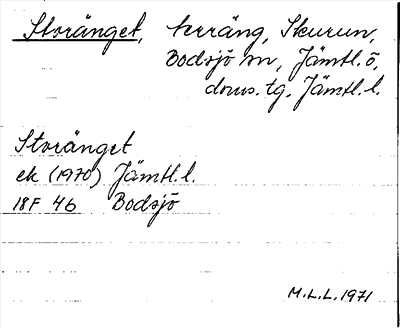 Storänget, terräng, Skurun,
Bodsjö sn, Jämtl. ö.
doms. tg, Jämtl. l.
Storänget
ek (1970) Jämtl. l.
18F 46 Bodsjö
M.L.L. 1971